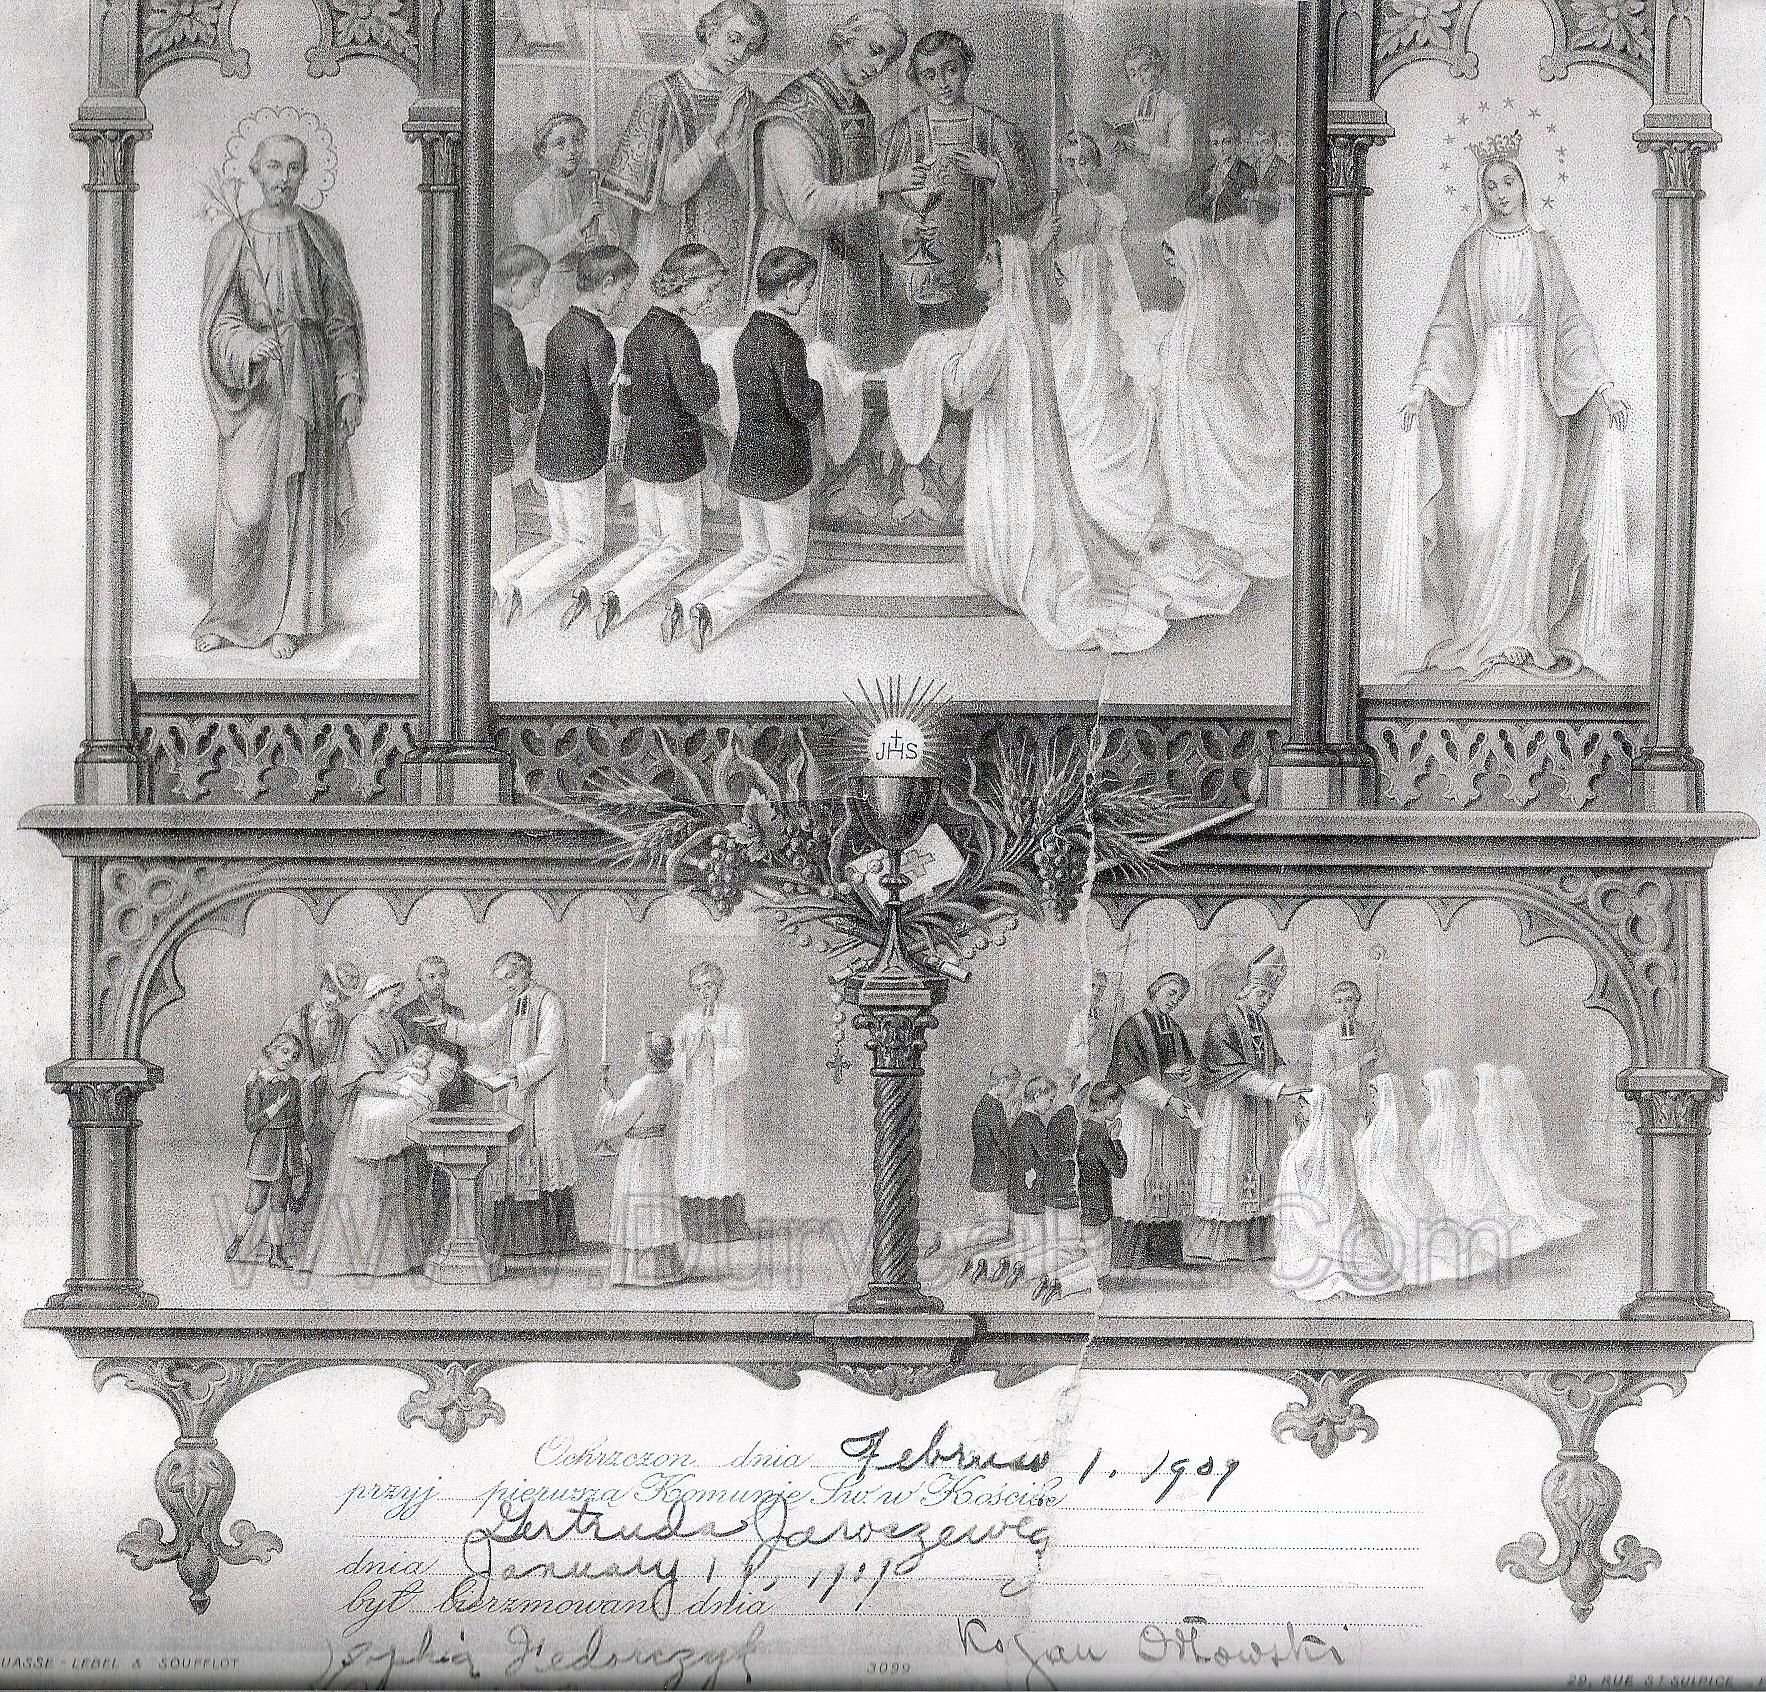 JHS
WWW.DuryeaPa.Com
Ochrzczon dnia Februar 1. 1909
przyj pieruszą Komunię Św. w Kościele
Gertruda Jaroszews
dnia January 19, 1909
był bierzmowan dnia
Sophia Fedorczyk Ks Jan Orłowski
UASSE-LEBEL & SOUFFLOT 3099 29, RUE ST SULPICE